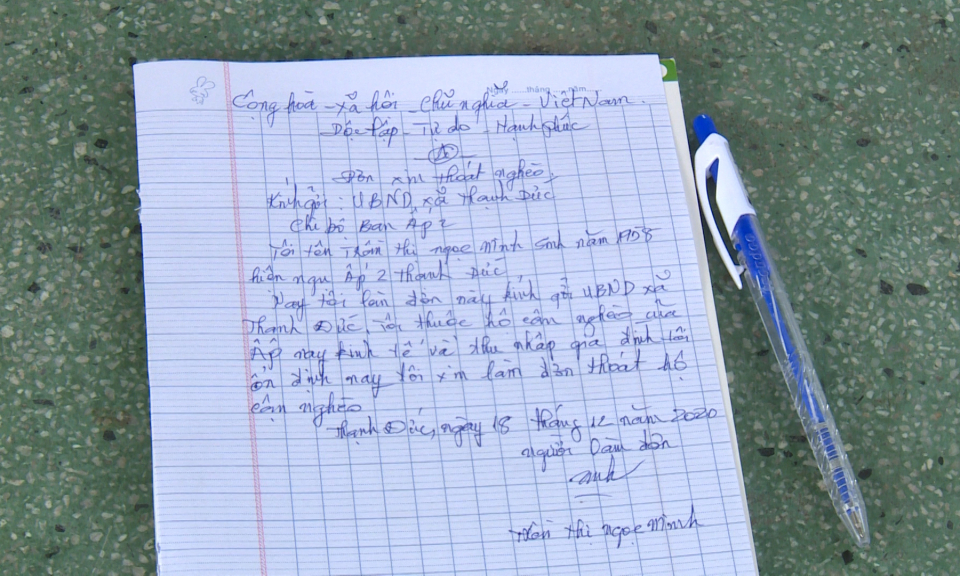 Ngày ... tháng ... năm
Cộng hoà - xã hôi - Chũ nghĩa - Việt Nam.
Độc lập - Tự do - Hạnh phúc
Đơn xin thoát nghèo,
Kính gỡi: UBND, xã Thạnh Đức
Chi bô Ban Ấp 2
Tôi tên Trần thị ngọc Minh sinh năm 1958
hiện ngu Ấp 2 thạnh Đức
Nay tôi làm đơn này kính gởi UBND xã
Thạnh Đức, tôi thuộc hộ cận nghèo của
Ấp nay kinh tế và thu nhập gia đình tôi
ổn định nay tôi xin làm đơn thoát hộ
cận nghèo
Thạnh Đức, ngày 18 tháng 12 năm 2020
người làm đơn
Trần thị ngọc Minh